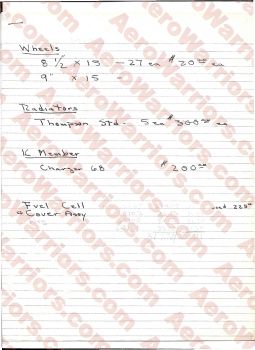 Wheels
8 1/2 x 15 - 27 ea $20.00 ea
9" x 15 -
Radiators
Thompson Std - 5 ea $300.00 ea
K Member
Charger 68 $200.00
Fuel Cell
& Cover Assy used 225.00
AeroWarriors.com